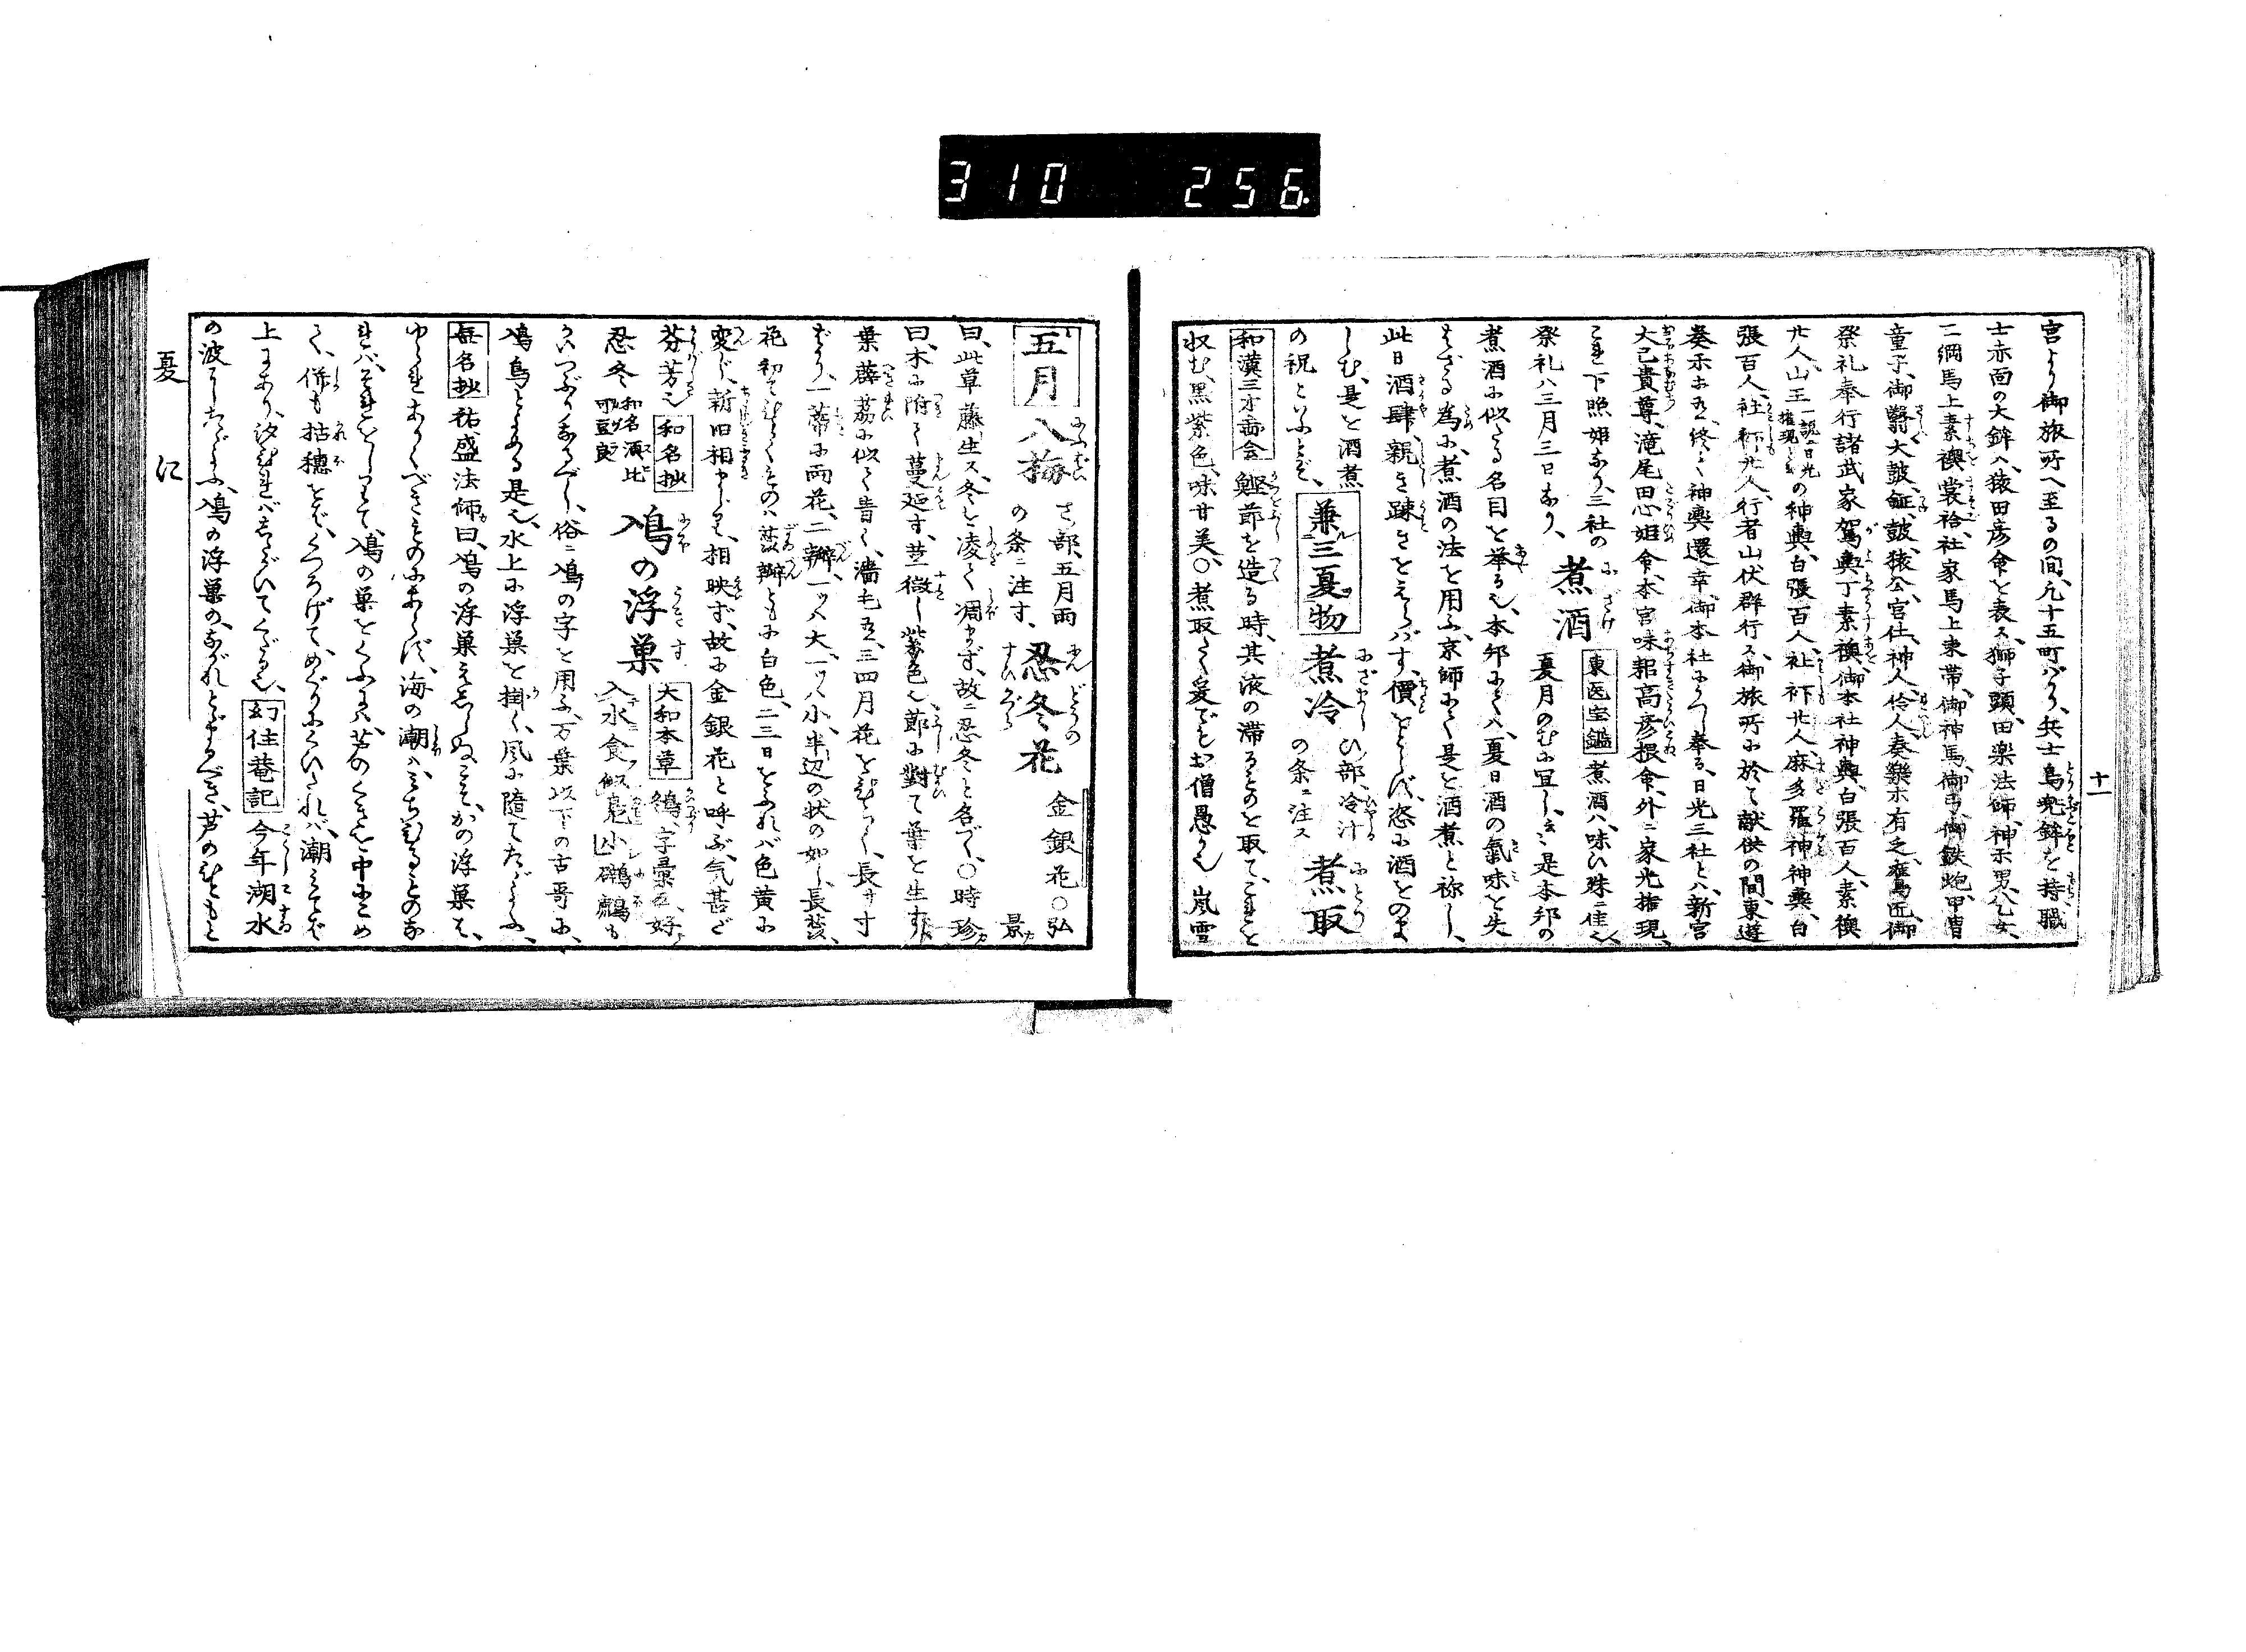 310 256
十一
宮より御旅所へ至るの間、凡十五町ばかり、兵士鳥兜鉾を持、職
士赤面の大鉾ハ、猿田彦命を表ス、獅子頭、田楽法師、神示男、八乙女、
二綱馬上素襖裳袷、社家馬上束帯、御神馬、御弓、御鉄炮、甲冑
童子、御翳、大皷、鉦皷、猿公、宮仕、神人、伶人、奏樂ホ有之、雀鳥匠、御
祭礼奉行諸武家駕輿丁素襖、御本社神輿、白張百人、素襖
廿人、山王一説日光権現との神輿、白張百人、社𧘕廿人、麻多羅神神輿、白
張百人、社𧘕廿人、行者山伏群行ス、御旅所に於て献供の間、東遊
奏示ホ在、終て神輿還幸、御本社にうつし奉る、日光三社とハ、新宮
大己貴尊、滝尾田心姫命、本宮味耜高彦根命、外ニ家光権現、
これ下照姫なり、三社の
祭礼ハ三月三日なり、
煮酒
東医宝鑑 煮酒ハ、味ひ殊ニ佳也、
夏月のむに宜し、是本邦の
煮酒に似たる名目を挙る也、本邦にてハ、夏日酒の氣味を失
はざる為に、煮酒の法を用ふ、京師にて是を酒煮と称し、
此日酒肆、親き疎きをえらバず、價をとらバ、恣に酒をのま
しむ、是を酒煮
の祝といふとぞ、
兼三夏物
煮冷 ひ部、冷汁
の条ニ注ス
煮取
和漢三才啚会 鰹節を造る時、其液の滞るものを取て、これを
収む、黒紫色、味甘美、○煮取たく爰でもお僧愚か也 嵐雪
五月
入梅 さ部、五月雨
の条ニ注す、
忍冬花 金銀花○弘
景
曰、此草藤生ス、冬を凌て凋まず、故ニ忍冬と名づく、○時珍
曰、木に附て蔓延す、茎微し紫色也、節に對て葉を生ず、
葉薜茘に似て青く、濇毛在、三四月花をひらく、長サ寸
ばかり、一蒂に両花、二瓣、一ッハ大、一ッハ小、半辺の状の如し、長蕊、
花初てひらくものハ、蕊瓣ともに白色、二三日をふれバ色黄に
変じ、新旧相まじりて、相映ず、故に金銀花と呼ぶ、气甚ざ
芬芳也 和名抄
忍冬 和名須比
可豆良
鳰の浮巣
大和本草 鸊、字彙云、好
入水食、似鳧小、鸊鷉も
かいつぶりなるべし、俗ニ鳰の字を用ふ、万葉以下の古哥に、
鳰鳥とよめる是也、水上に浮巣を掛く、風に随てたゞよふ、
無名抄 祐盛法師曰、鳰の浮巣えしらぬこそ、かの浮巣は、
ゆられありくべきものにあらず、海の潮ハみちひるものな
れバ、それをしりて、鳰の巣をくふにハ、芦のくきを中にこめ
て、併も括穂をバ、くつろげて、めぐりにくひたれバ、潮みてバ
上にあがり、汐ひれバしたがひてくだる也、 幻住菴記 今年湖水
の波にたゞよふ、鳰の浮巣の、ながれとゞまるべき、芦のひともと
夏 に